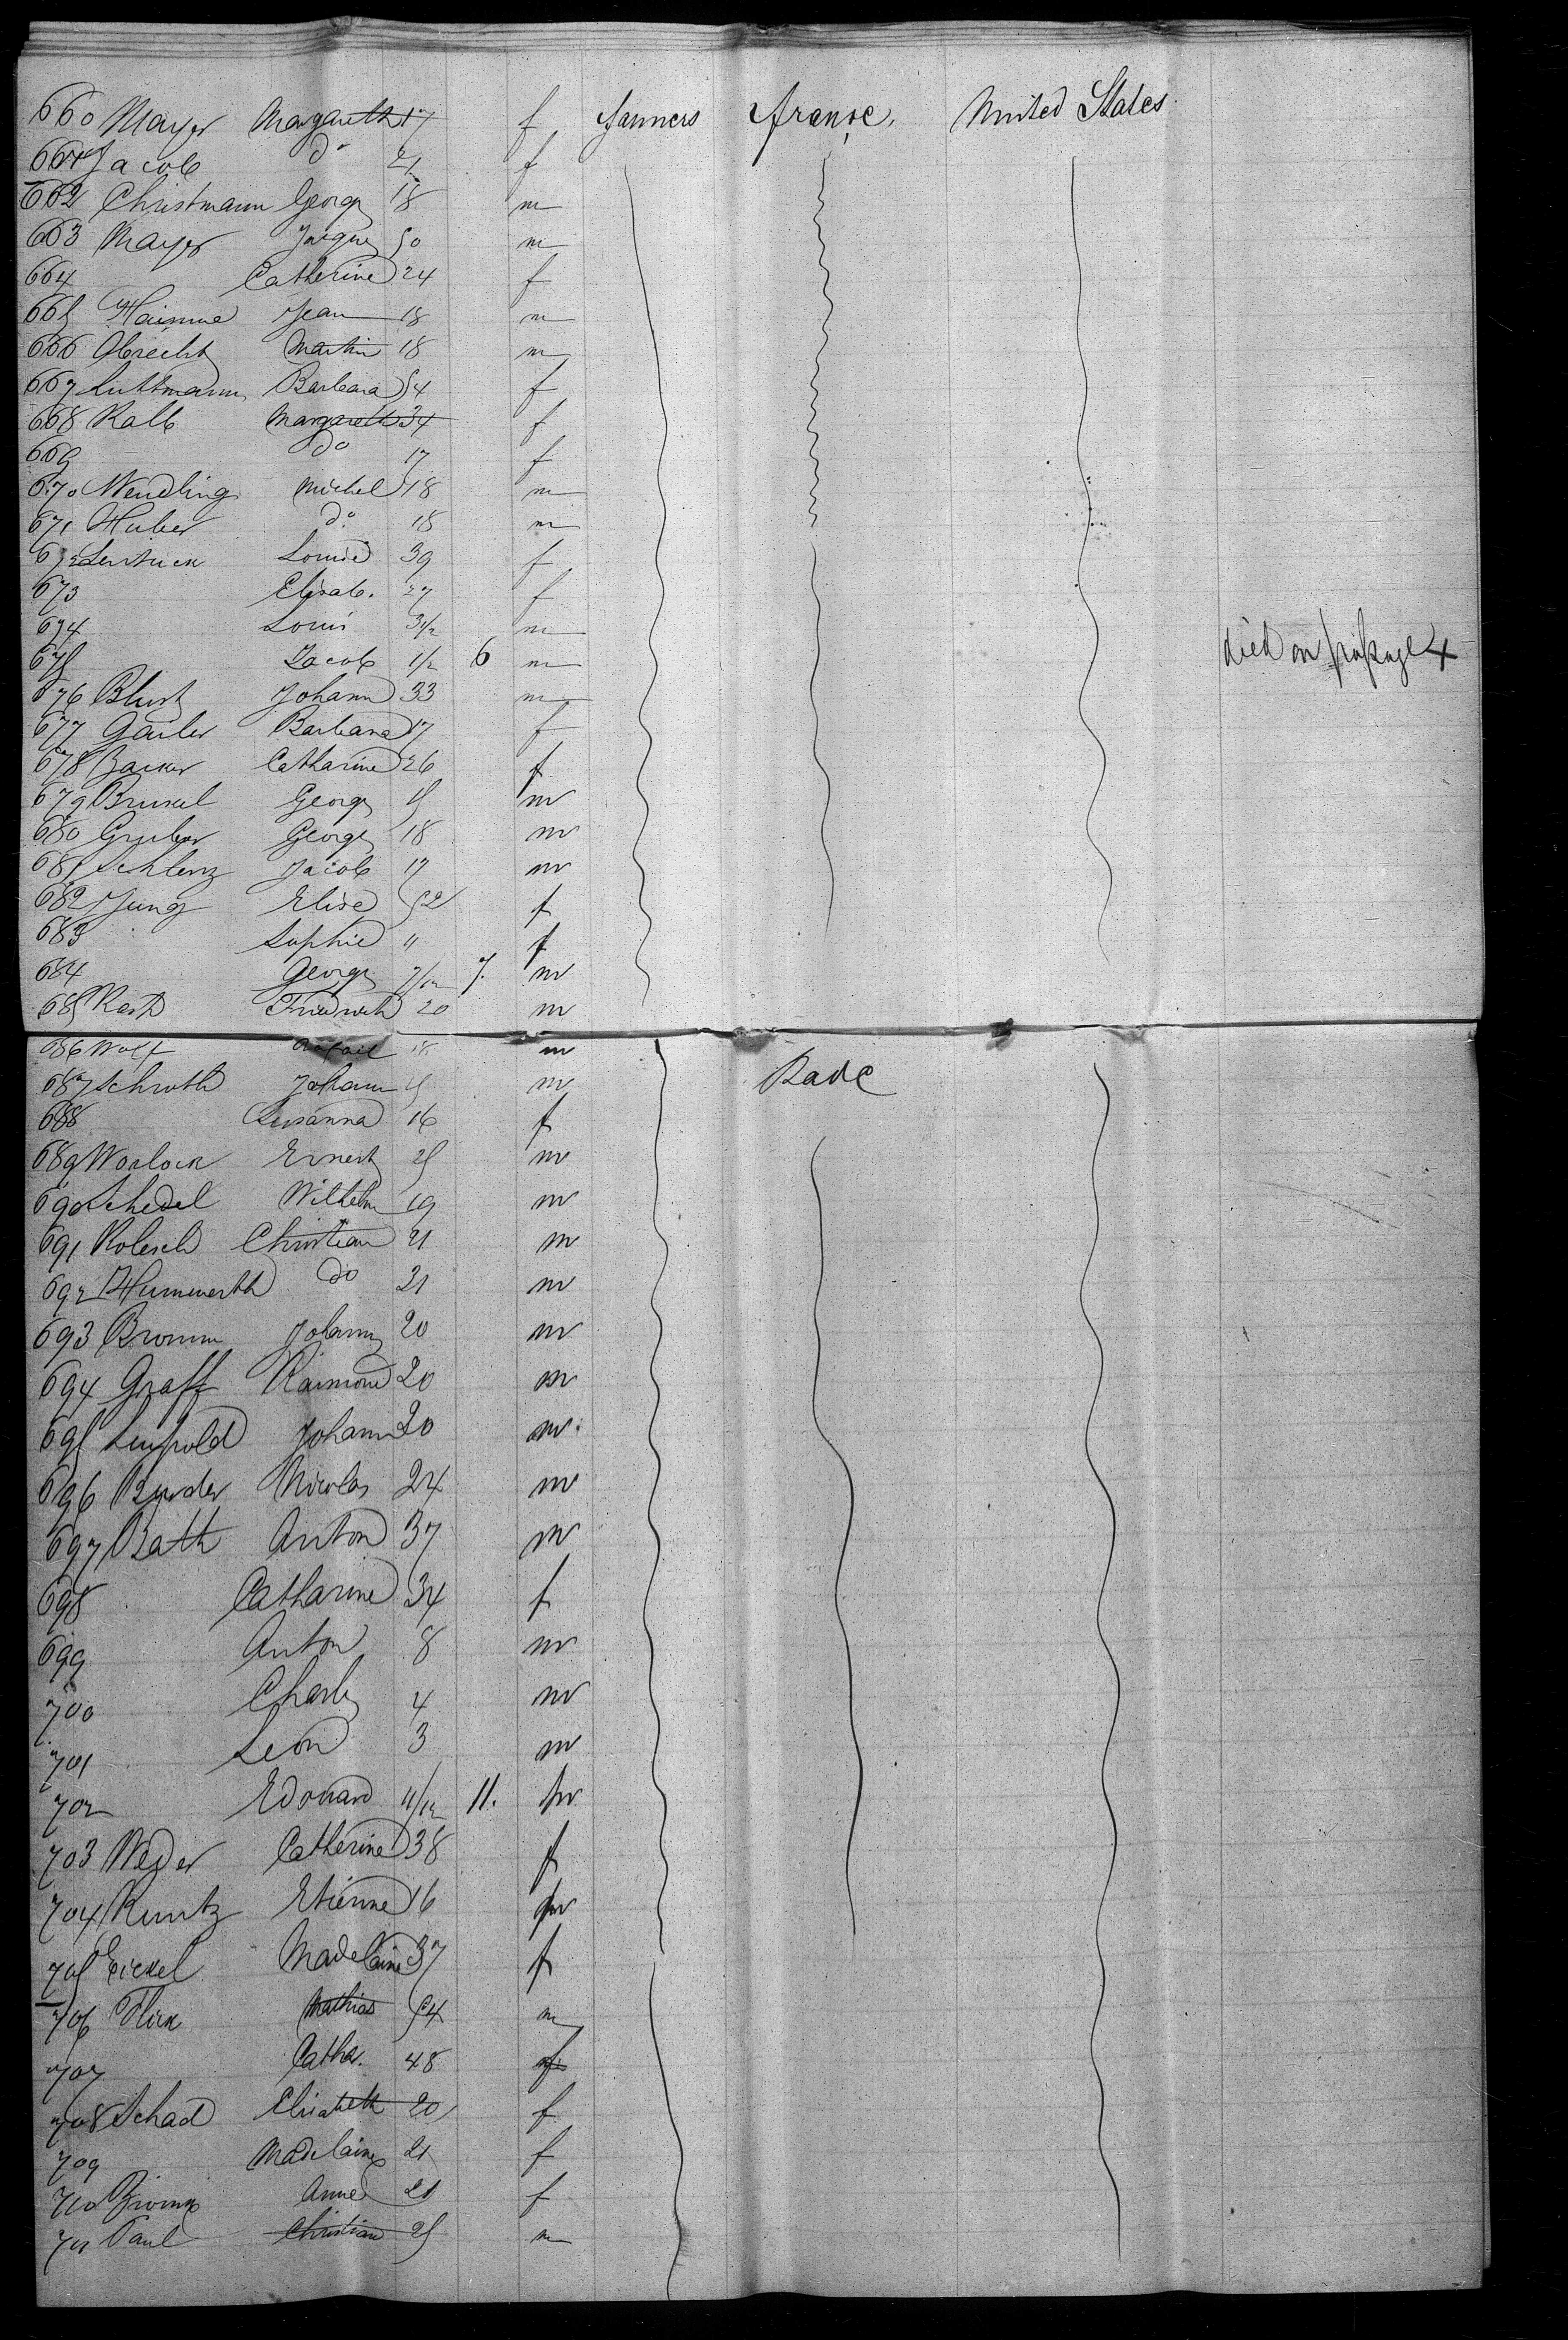 660 Mayer Margareth 17 f farmers france. United States
661 Jacob do 21 f
662 Christmann George 18 m
663 Mayer Jacque 50 m
664 Catherine 24 f
665 Jean 18 m
666 Obrecht Martin 18 m
667 Luttmann Barbara 54 f
668 Kalb Margareth 34 f
669 do 17 f
670 Wendling Michel 18 m
671 Huber do 18 m
672 Louise 39 f
673 Elisab. 27 f
674 Louis 3 1/2 m
675 Jacob 1/2 6 m died on passage 4
676 Johann 33 m
677 Gailer Barbara 17 f
678 Catharine 26 f
679 George 15 m
680 Gruber George 18 m
681 Schlenz Jacob 17 m
682 Jung Elise 52 f
683 Sophie 11 f
684 George 7/12 7. m
685 Friedrich 20 m
686 Wolf 18 m
687 Schroth Johann 15 m Bade
688 Susanna 16 f
689 Worlock Ernest 25 m
690 Schedel Wilhelm 19 m
691 Kolesch Christian 21 m
692 Hummerth do 21 m
693 Bromm Johann 20 m
694 Graff Raimond 20 m
695 Leupold Johann 20 m
696 Nicolas 24 m
697 Bath Anton 37 m
698 Catharine 34 f
699 Anton 8 m
700 Charles 4 m
701 Leon 3 m
702 Edouard 11/12 11. m
703 Weder Catherine 38 f
704 Kuntz Etienne 16 m
705 Eickel Madelaine 37 f
706 Flick Mathias 54 m
707 Cathe. 48 f
708 Schad Elisabeth 20 f
709 Madelaine 21 f
710 Anne 21 f
711 Paul Christian 25 m